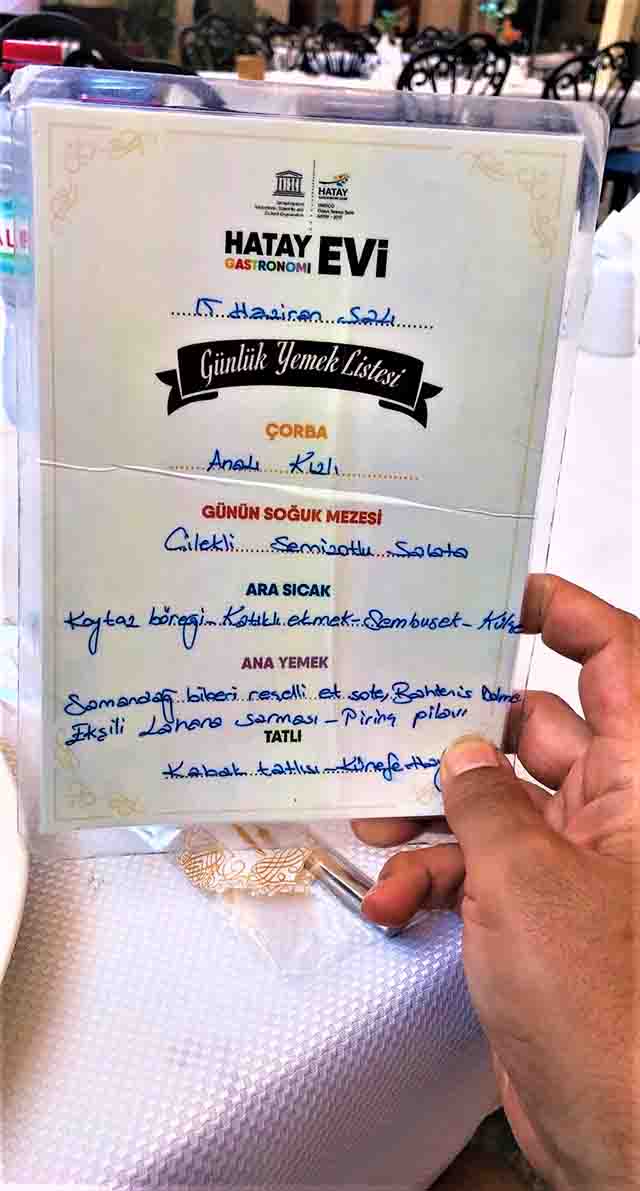 HATAY
HATAY
GASTRONOMİ
EVİ
Haziran Salı
Günlük Yemek Listesi
ÇORBA
Analı Kızlı
GÜNÜN SOĞUK MEZESİ
Çilekli Semizotlu Salata
ARA SICAK
Kaytaz böreği - Katıklı ekmek - Sembusek -
ANA YEMEK
Samandağ biberi reçelli et sote, Dolma
Ekşili Lahana sarması - Pirinç pilavı
TATLI
Kabak tatlısı - Künefe -